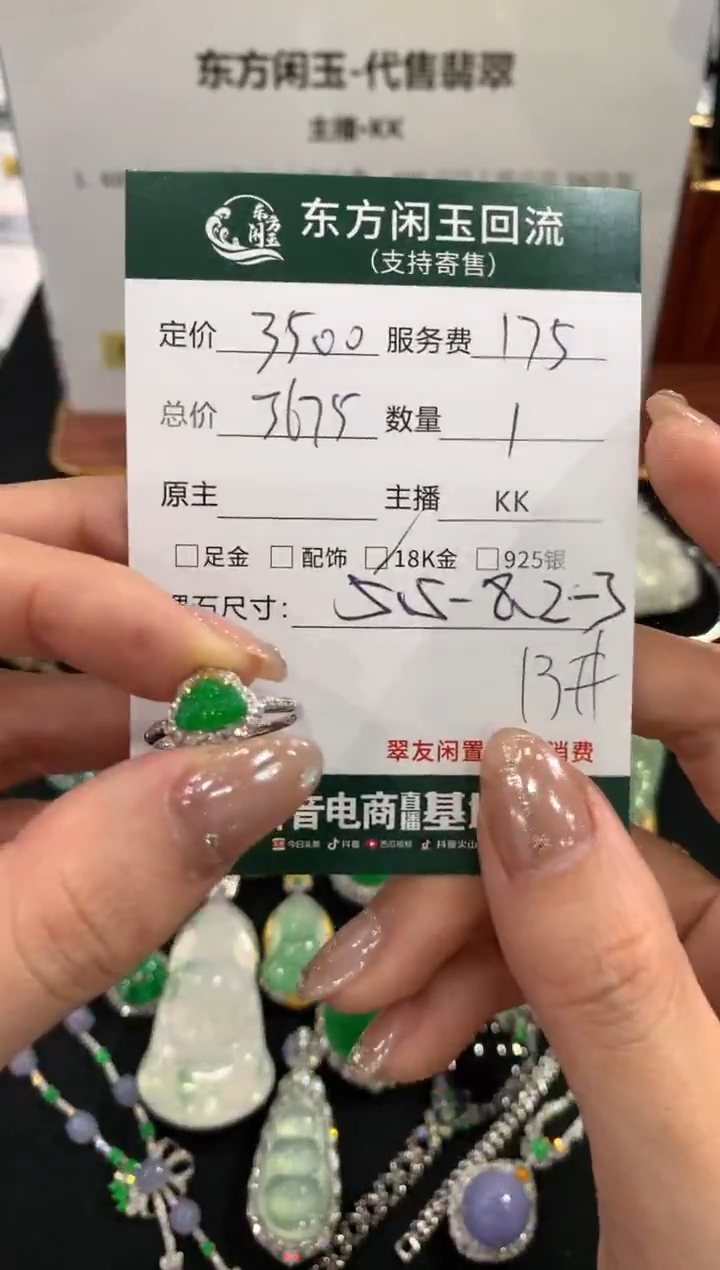 东方闲玉-代售翡翠
主播-KK
东方闲玉
东方闲玉回流
(支持寄售)
定价 3500 服务费 175
总价 3675 数量 1
原主 主播 KK
足金 配饰 18K金 925银
石尺寸: 5.5-8.2-3
13#
翠友闲置 消费
音电商直播基地
今日头条 抖音 西瓜视频 抖音火山